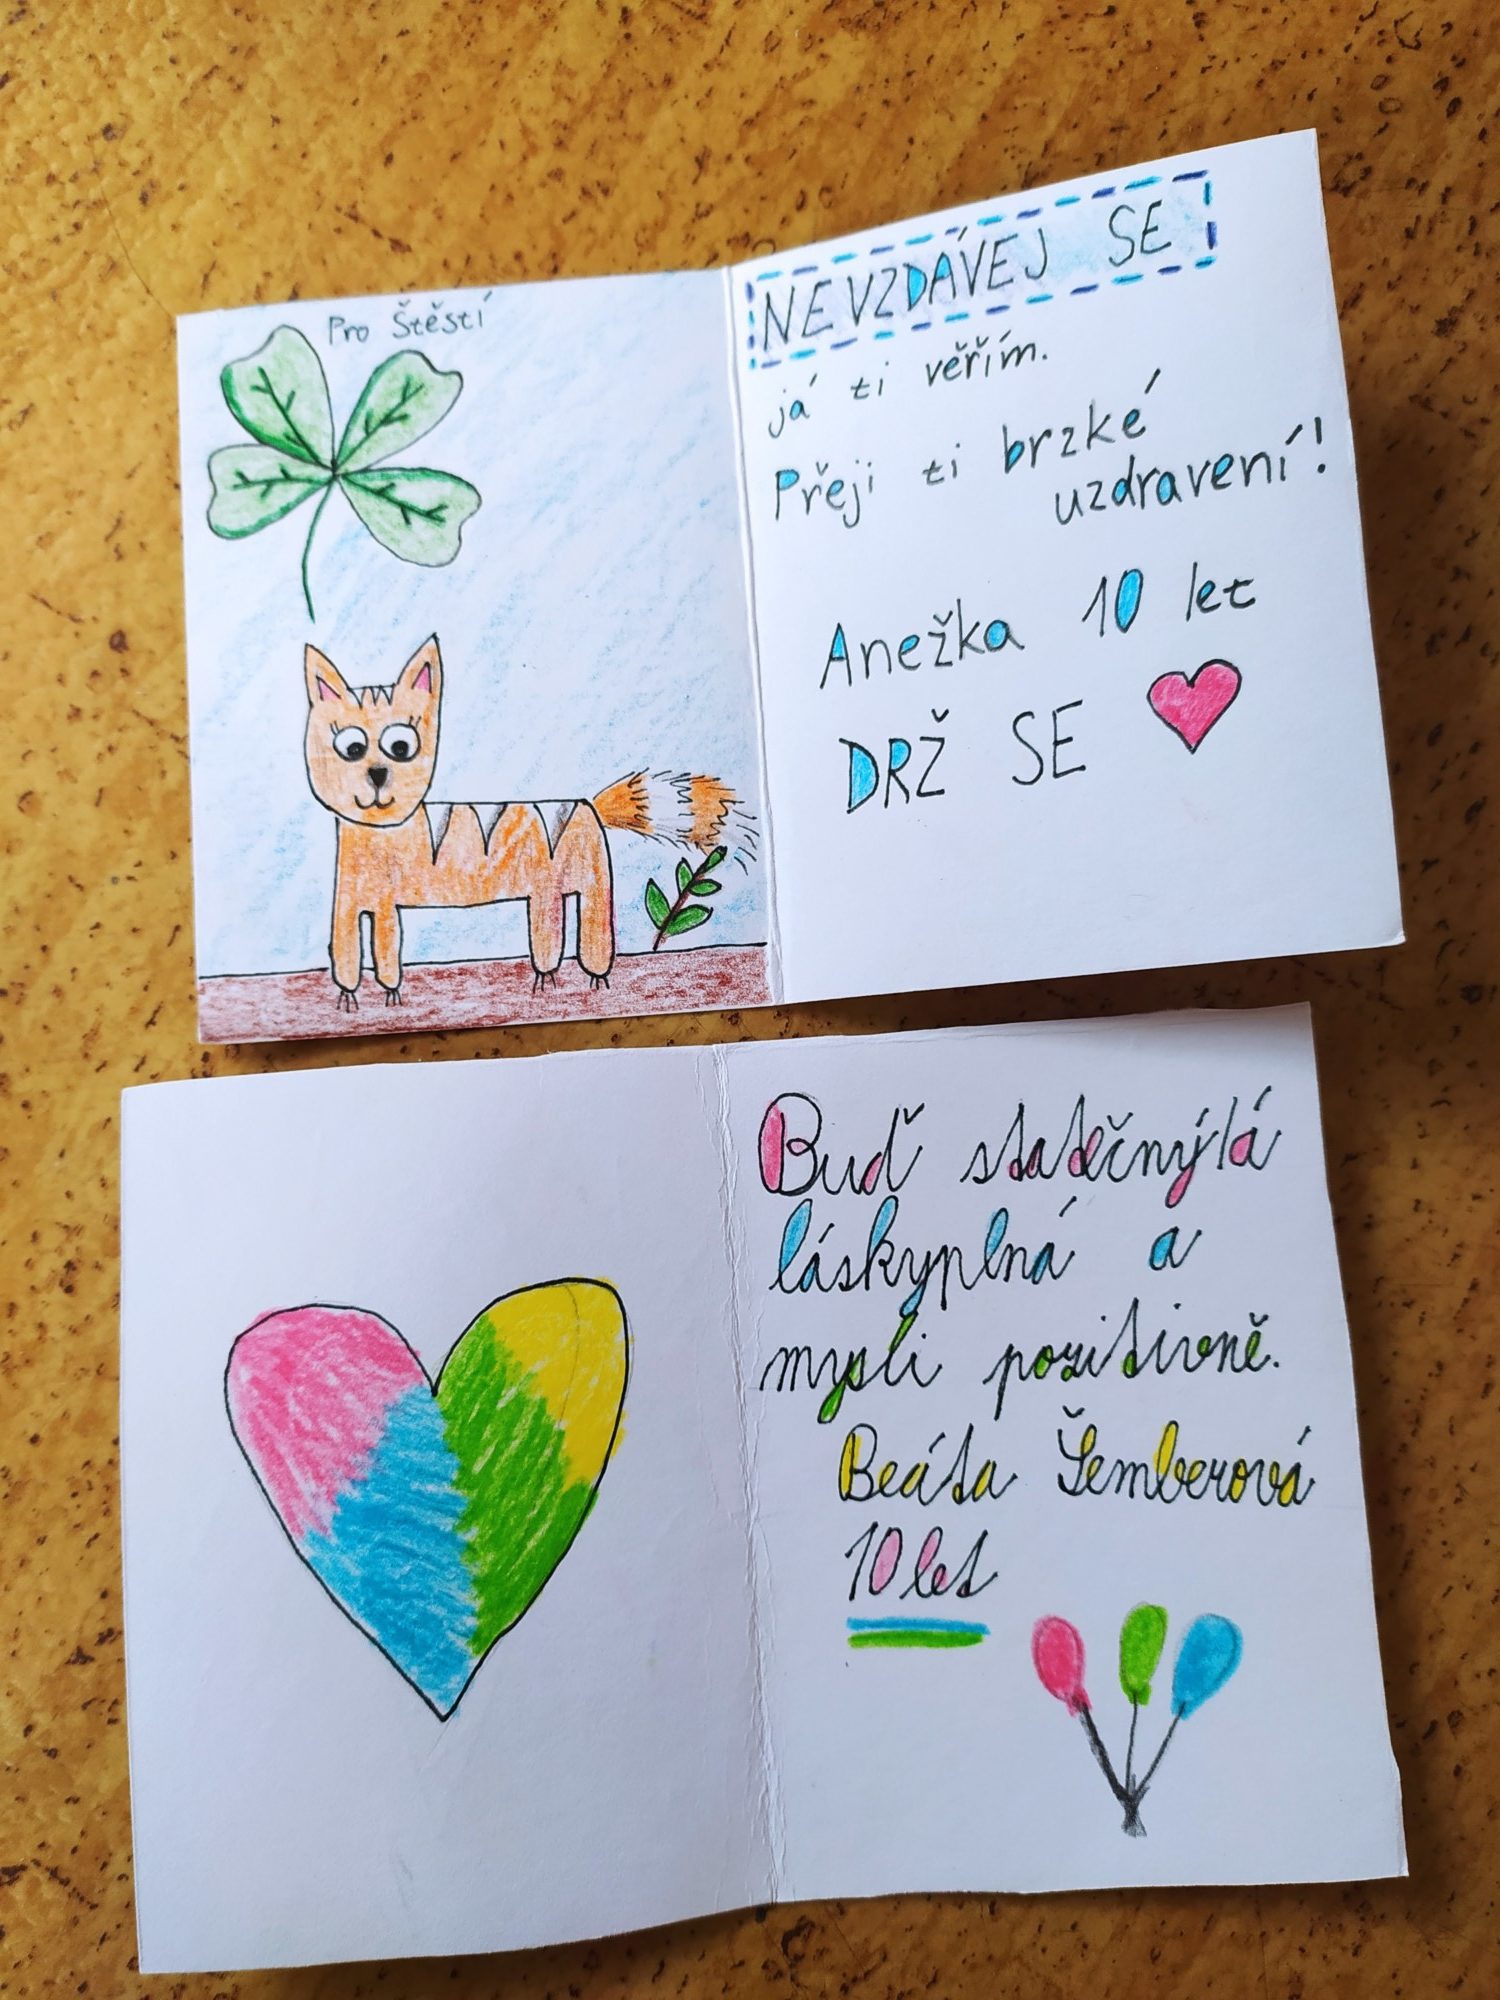 Pro Štěstí
NEVZDÁVEJ SE
já ti věřím.
Přeji ti brzké
uzdravení!
Anežka 10 let
DRŽ SE
Buď statečný/á
láskyplná a
mysli pozitivně.
Beáta Šemberová
10 let